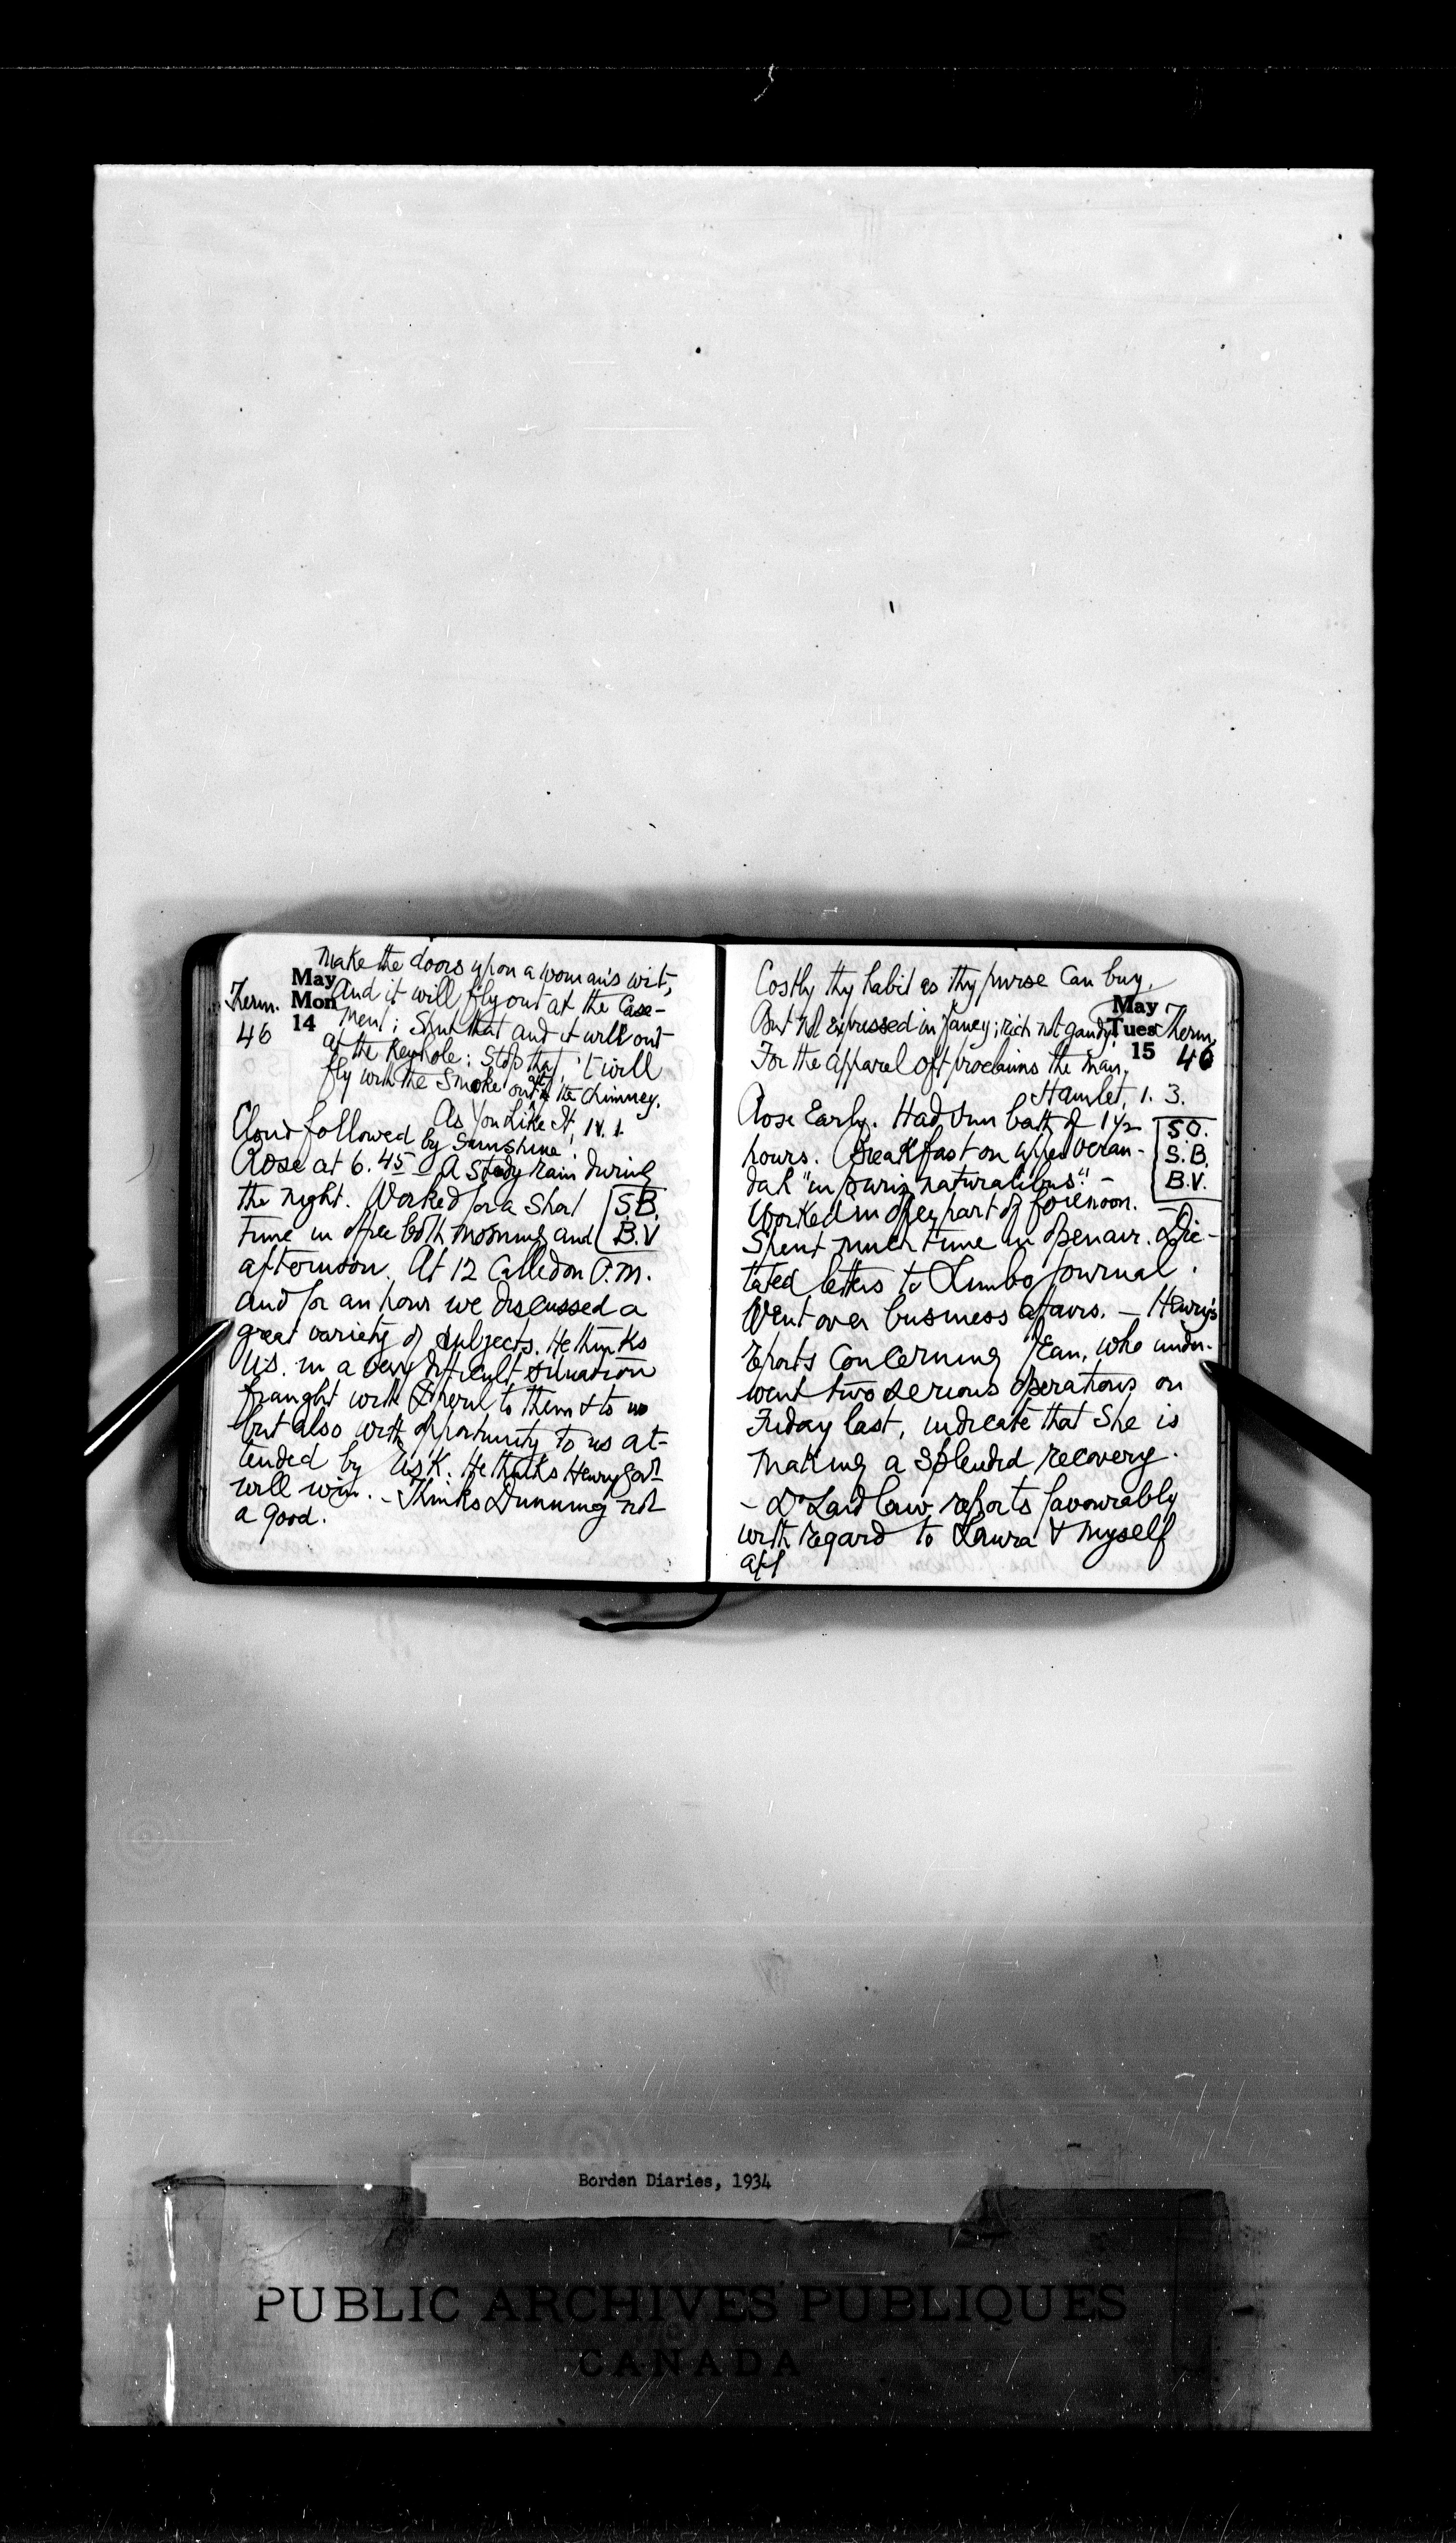 Make the doors upon a woman's wit,
May
and it will fly out at the case-
Therm.
Mon
ment; Shut that and it will out
46
14
at the Keyhole; Stop that, 't will
fly with the Smoke out at the chimney.
As You Like It, IV. 1.
Cloud followed by Sunshine.
Rose at 6.45 – A Steady rain during
the night. Worked for a Short
S.B.
time in office both morning and
B.V
afternoon. At 12 Called on P.M.
and for an hour we discussed a
great variety of subjects. He thinks
U.S. in a very difficult situation
fraught with peril to them & to us
but also with opportunity to us at-
tended by risk. He thinks Henry Govt
will win. – Thinks Dunning not
a good.
Costly thy habit as thy purse Can buy,
May
But not expressed in fancy; rich not gaudy:
Tues
Therm.
15
46
For the apparel oft proclaims the man.
Hamlet, 1. 3.
Rose Early. Had Sun bath of 1½
S.O.
hours. Breakfast on upper veran-
S.B.
dah "in puris naturalibus." –
B.V.
Worked in office part of forenoon.
Spent much time in open air. Dic-
tated letters to Limbo Journal.
Went over business affairs. – Henry's
reports Concerning Jean, who under-
went two serious operations on
Friday last, indicate that She is
making a Splendid recovery.
– Dr Laidlaw reports favourably
with regard to Laura & myself
Borden Diaries, 1934
PUBLIC ARCHIVES PUBLIQUES
CANADA